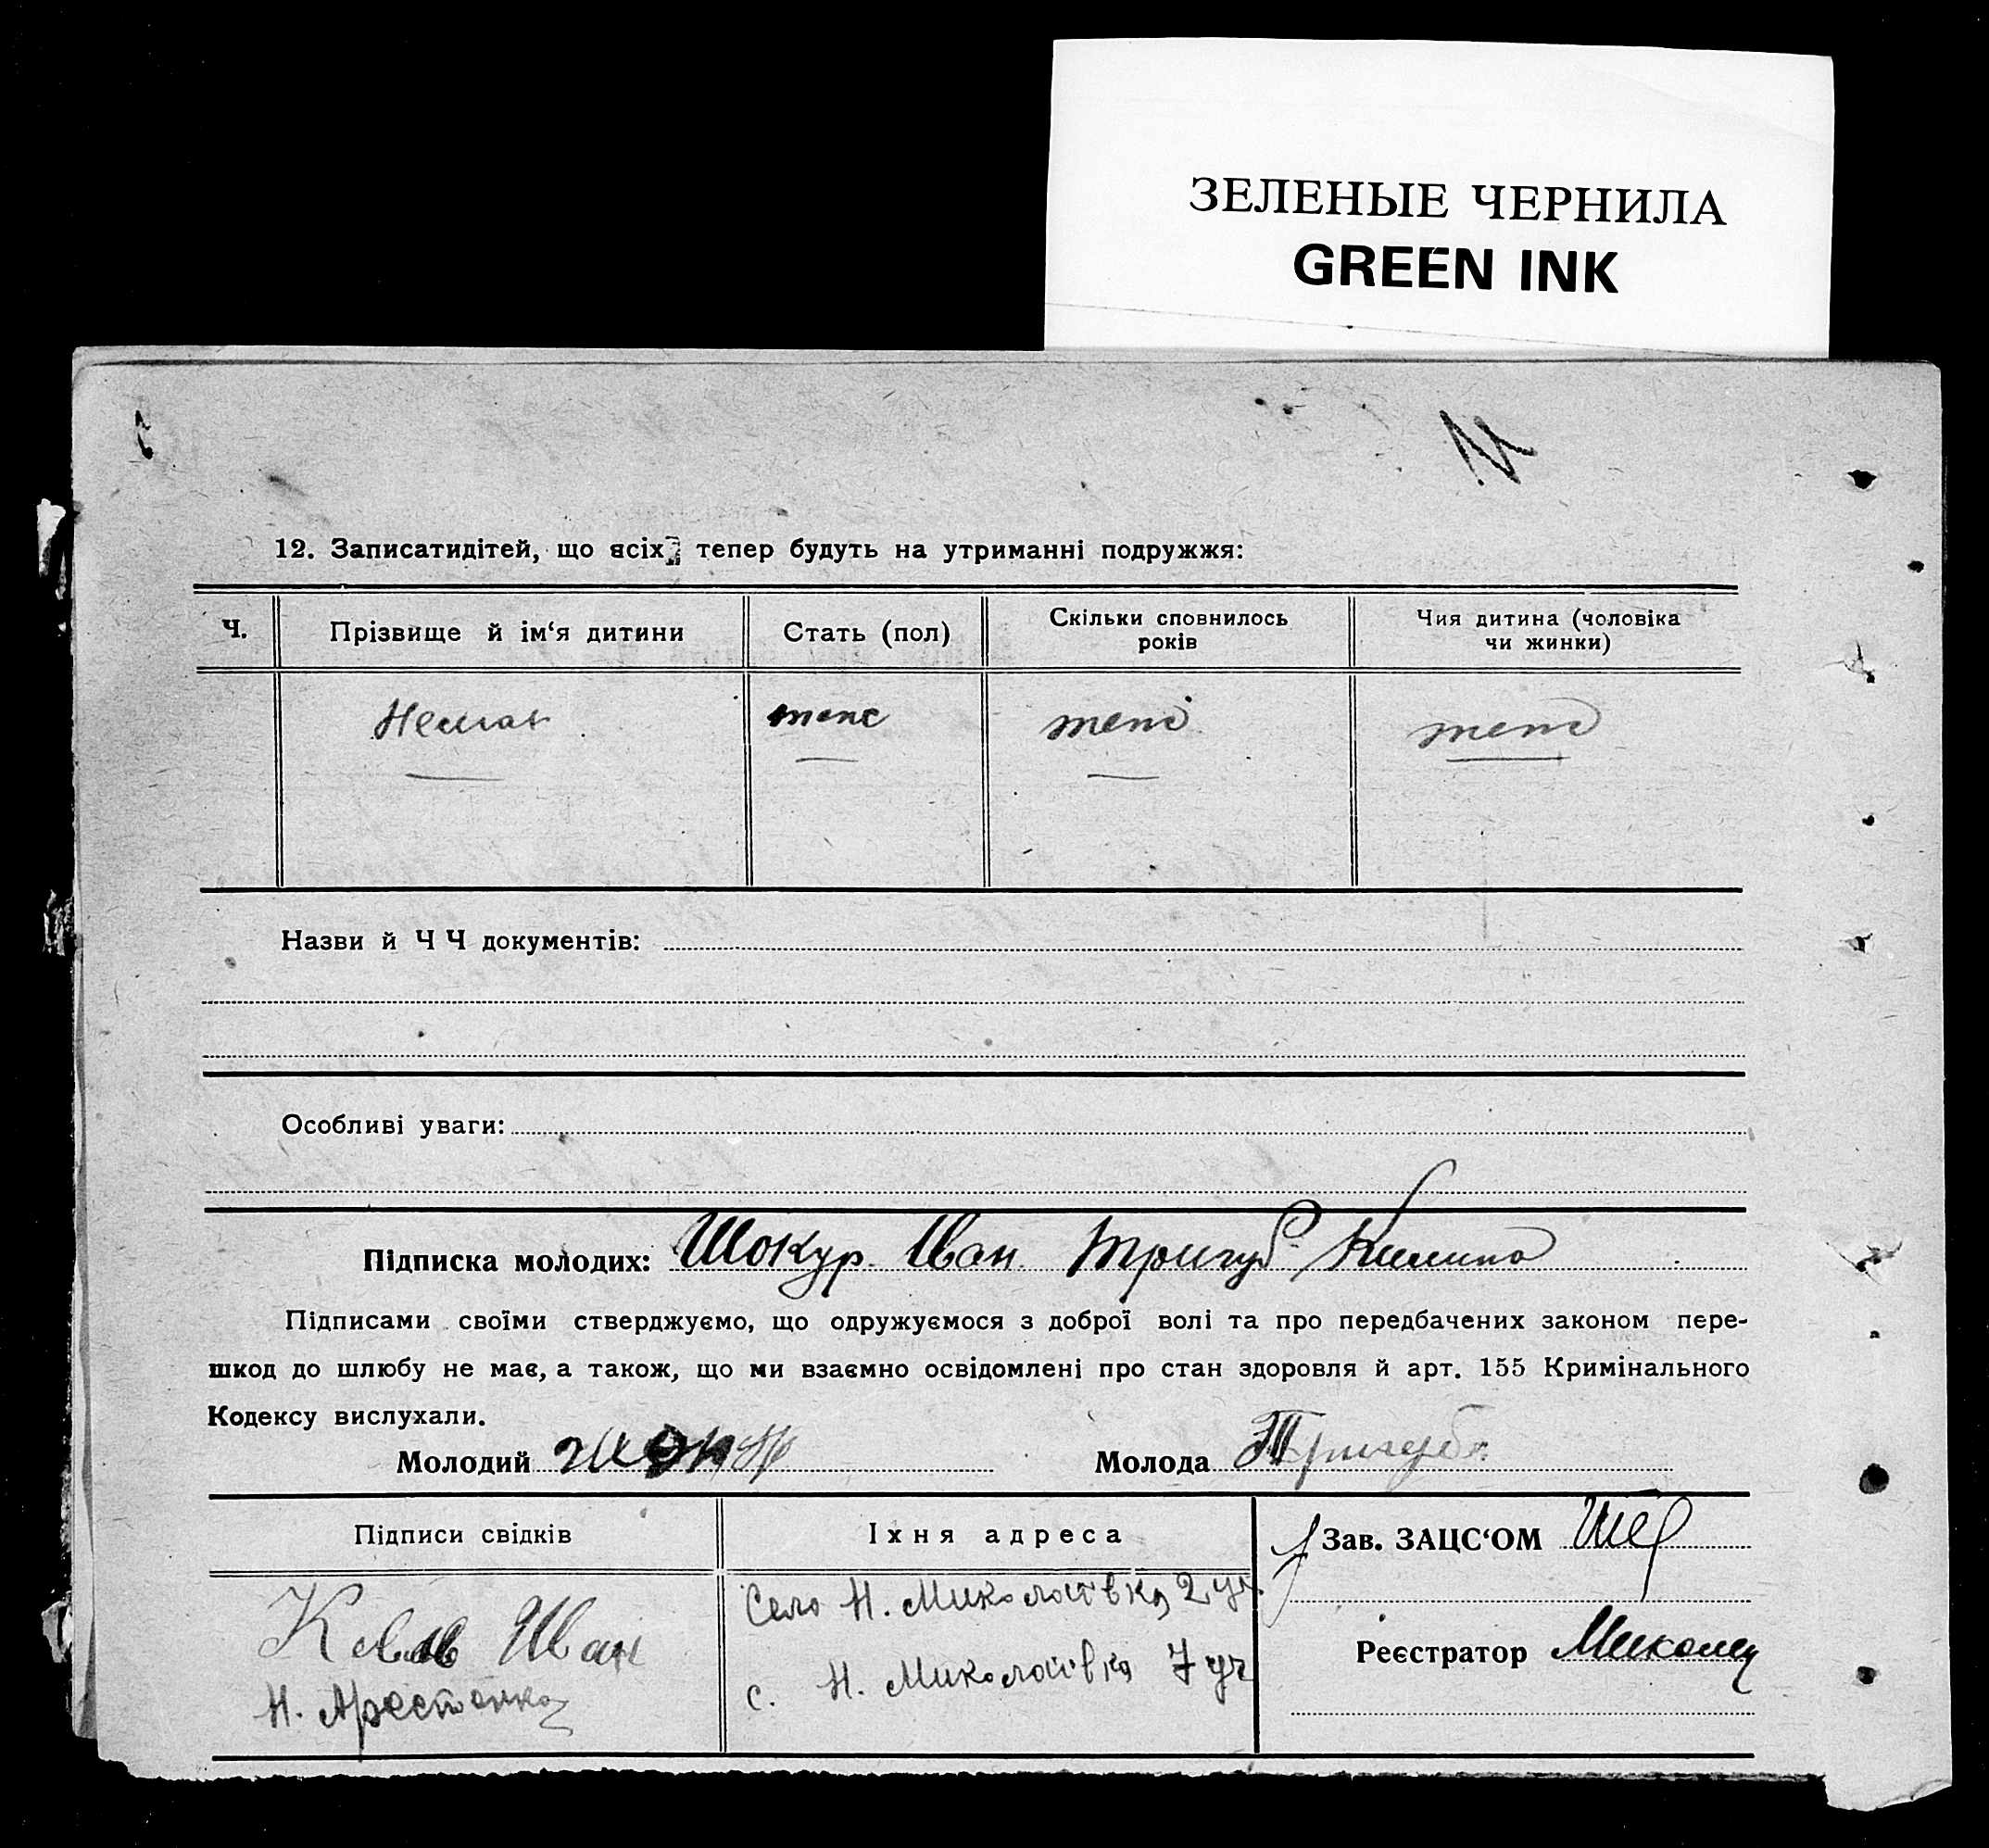 ЗЕЛЕНЫЕ ЧЕРНИЛА
GREEN INK
12. Записатидітей, що всіх тепер будуть на утриманні подружжя:
Ч.
Прізвище й ім‘я дитини
Стать (пол)
Скільки сповнилось
років
Чия дитина (чоловіка
чи жинки)
Немає
теж
Назви й Ч Ч документів:
Особливі уваги:
Підписка молодих: Шокур Иван Тригуб Килина
Підписами своїми стверджуємо, що одружуємося з доброї волі та про передбачених законом пере-
шкод до шлюбу не має, а також, що ми взаємно освідомлені про стан здоровля й арт. 155 Кримінального
Кодексу вислухали.
Молодий Шокур
Молода Тригуб
Підписи свідків
Іхня адреса
Зав. ЗАЦС‘ОМ
Иван
Н.
Село Н. Миколаївка 2 уч.
с. Н. Миколаївка 7 уч
Реєстратор